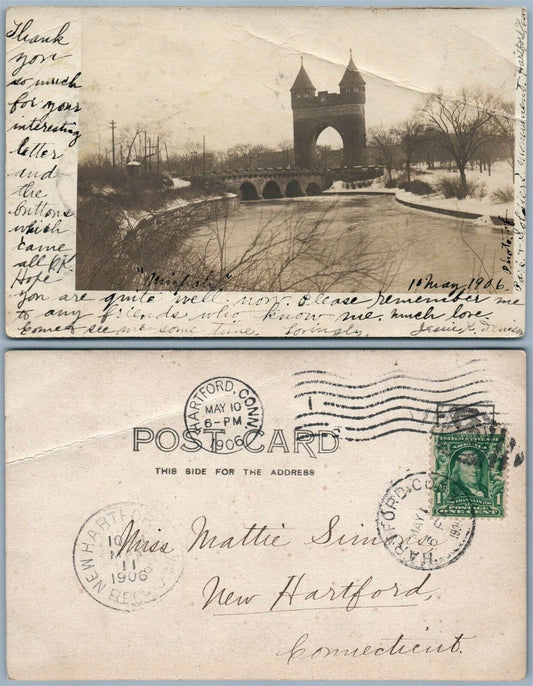 Thank
you
so much
for your
interesting
letter
and
the
buttons
which
came
all O.K.
Hope
you are quite well now. Please remember me
to any friends who know me. Much love.
Come + see me some time. Lovingly, Jessie
"Mizpah"
10 May 1906.
Photo. of
Park + Soldiers' Monument, Hartford
HARTFORD, CONN.
MAY 10
6-PM
1906
1
POST CARD
THIS SIDE FOR THE ADDRESS
HARTFORD, CONN.
MAY
6 P
FRANKLIN
1 1
POSTAGE
ONE CENT
NEW HARTFORD
10
MAY
11
1906
REC'D
Miss Mattie
New Hartford,
Connecticut.